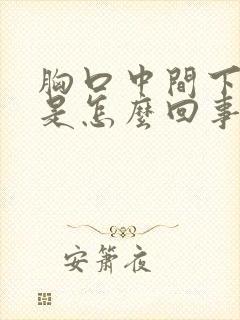 胸口中間下
是怎麼回事
安簫夜